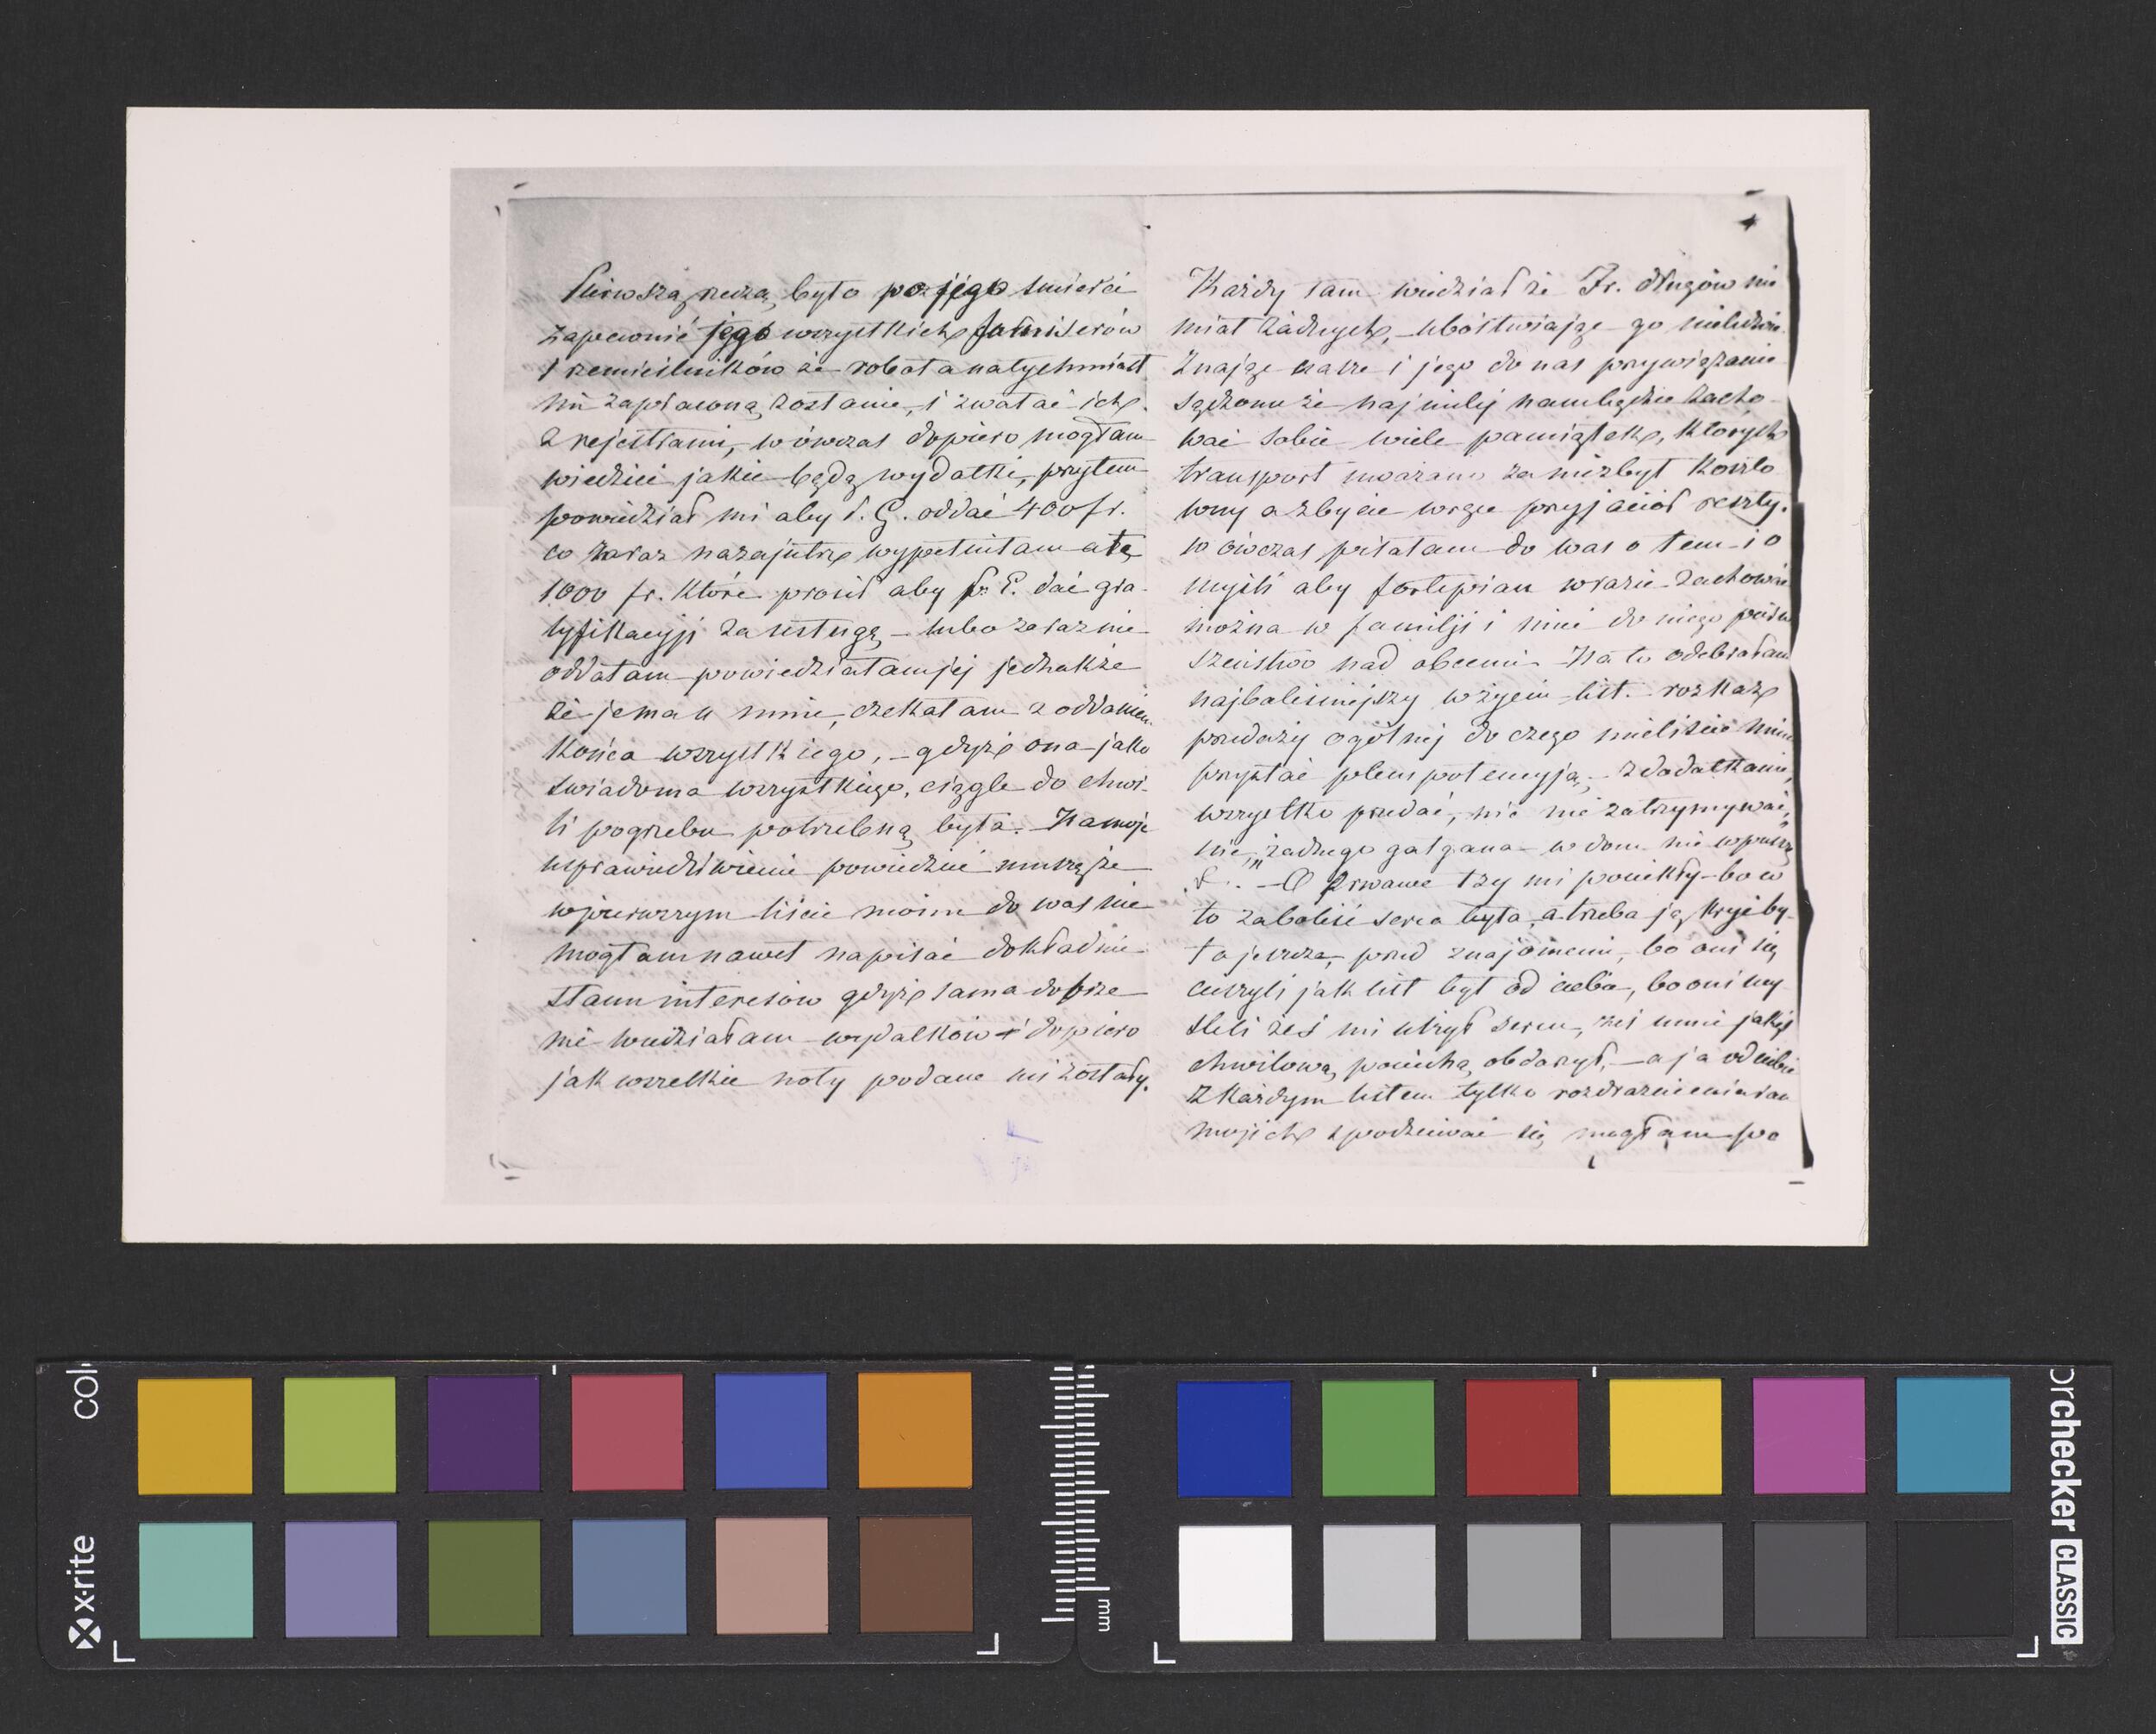 Pierwszą rzeczą było po jego śmierci
zapewnić jego wszystkich furniserów
i rzemieślników że robota natychmiast
mi zapłaconą zostanie, i zwołać ich
z rejestrami, wówczas dopiero mogłam
wiedzieć jakie będą wydatki, przytem
powiedział mi aby P. G. oddać 400 fr.
co zaraz nazajutrz wypełniłam a te
1000 fr. które prosił aby p. E. dać gra-
tyfikacyji za usługę lubo zaraz nie
oddałam powiedziałam jej jednakże
że je ma u mnie, czekałam z oddaniem
końca wszystkiego, - gdyż ona jako
świadoma wszystkiego, ciągle do chwi-
li pogrzebu potrzebną była. Na moje
usprawiedliwienie powiedzieć muszę że
w pierwszym liście moim do was nie
mogłam nawet napisać dokładnie
stanu interesów gdyż sama dobrze
nie wiedziałam wydatków i dopiero
jak wszelkie noty podane mi zostały.
Każdy tam wiedział że Fr. długów nie
miał żadnych, ubóstwiając go
Znając nasze i jego do nas przywiązanie
sądzono że najmilej nam będzie zacho-
wać sobie wiele pamiątek, których
transport uważano za niezbyt koszto-
wny a zbycie w ręce przyjaciół reszty.
wówczas pisałam do was o tem i o
myśli aby fortepian w razie zachować
można w familji i mieć do niego pierw
szeństwo nad obcemi Na to odebrałam
najboleśniejszy w życiu list. rozkaz
przedaży ogólnej do czego mieliście mnie
przysłać plenipotencyją, - z dodatkami,
wszystko przedać, nic nie zatrzymywać,
nie, "żadnego gałgana w dom nie wpuszczę
 - O krwawe łzy mi pociekły bo w
to za boleść serca była, a trzeba ją kryć by-
ło jeszcze, przed znajomemi, bo oni się
cieszyli jak list był od ciebie, bo oni my-
śleli żeś mi ulżył sercu, żeś mnie jakąś
chwilową pociechą obdarzył, - a ja od ciebie
z każdym listem tylko rozdrażnienia ran
mojich spodziewać się mogłam po